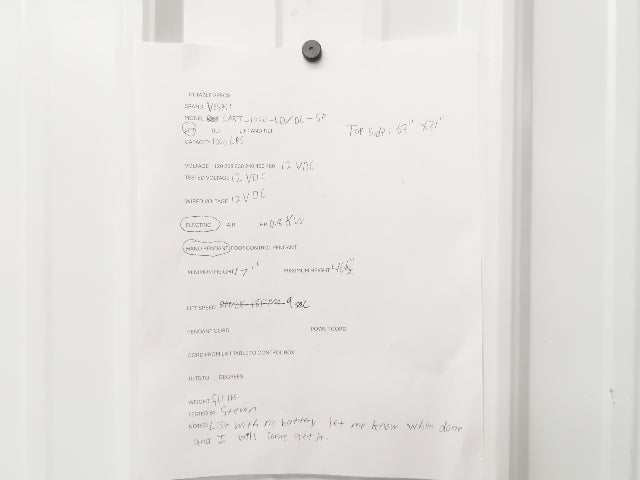 LIFT TABLE SPECS
BRAND Vestil
MODEL CART-1000-LD/DC-
LIFT TILT LIFT AND TILT
Top Side: X
CAPACITY 1000 LBS
VOLTAGE 120 208 230 240 460 480 12 VDC
TESTED VOLTAGE 12 VDC
WIRED VOLTAGE 12 VDC
ELECTRIC AIR HP 0.8 KW
HAND PENDANT FOOT CONTROL PENDANT
MINIMUM HEIGHT MAXIMUM HEIGHT
LIFT SPEED 9 sec
PENDANT CORD POWER CORD
CORD FROM LIFT TABLE TO CONTROL BOX
TILTS TO DEGREES
WEIGHT
TESTED BY Steven
NOTES: List with no battery let me know when done
and I will come get it.